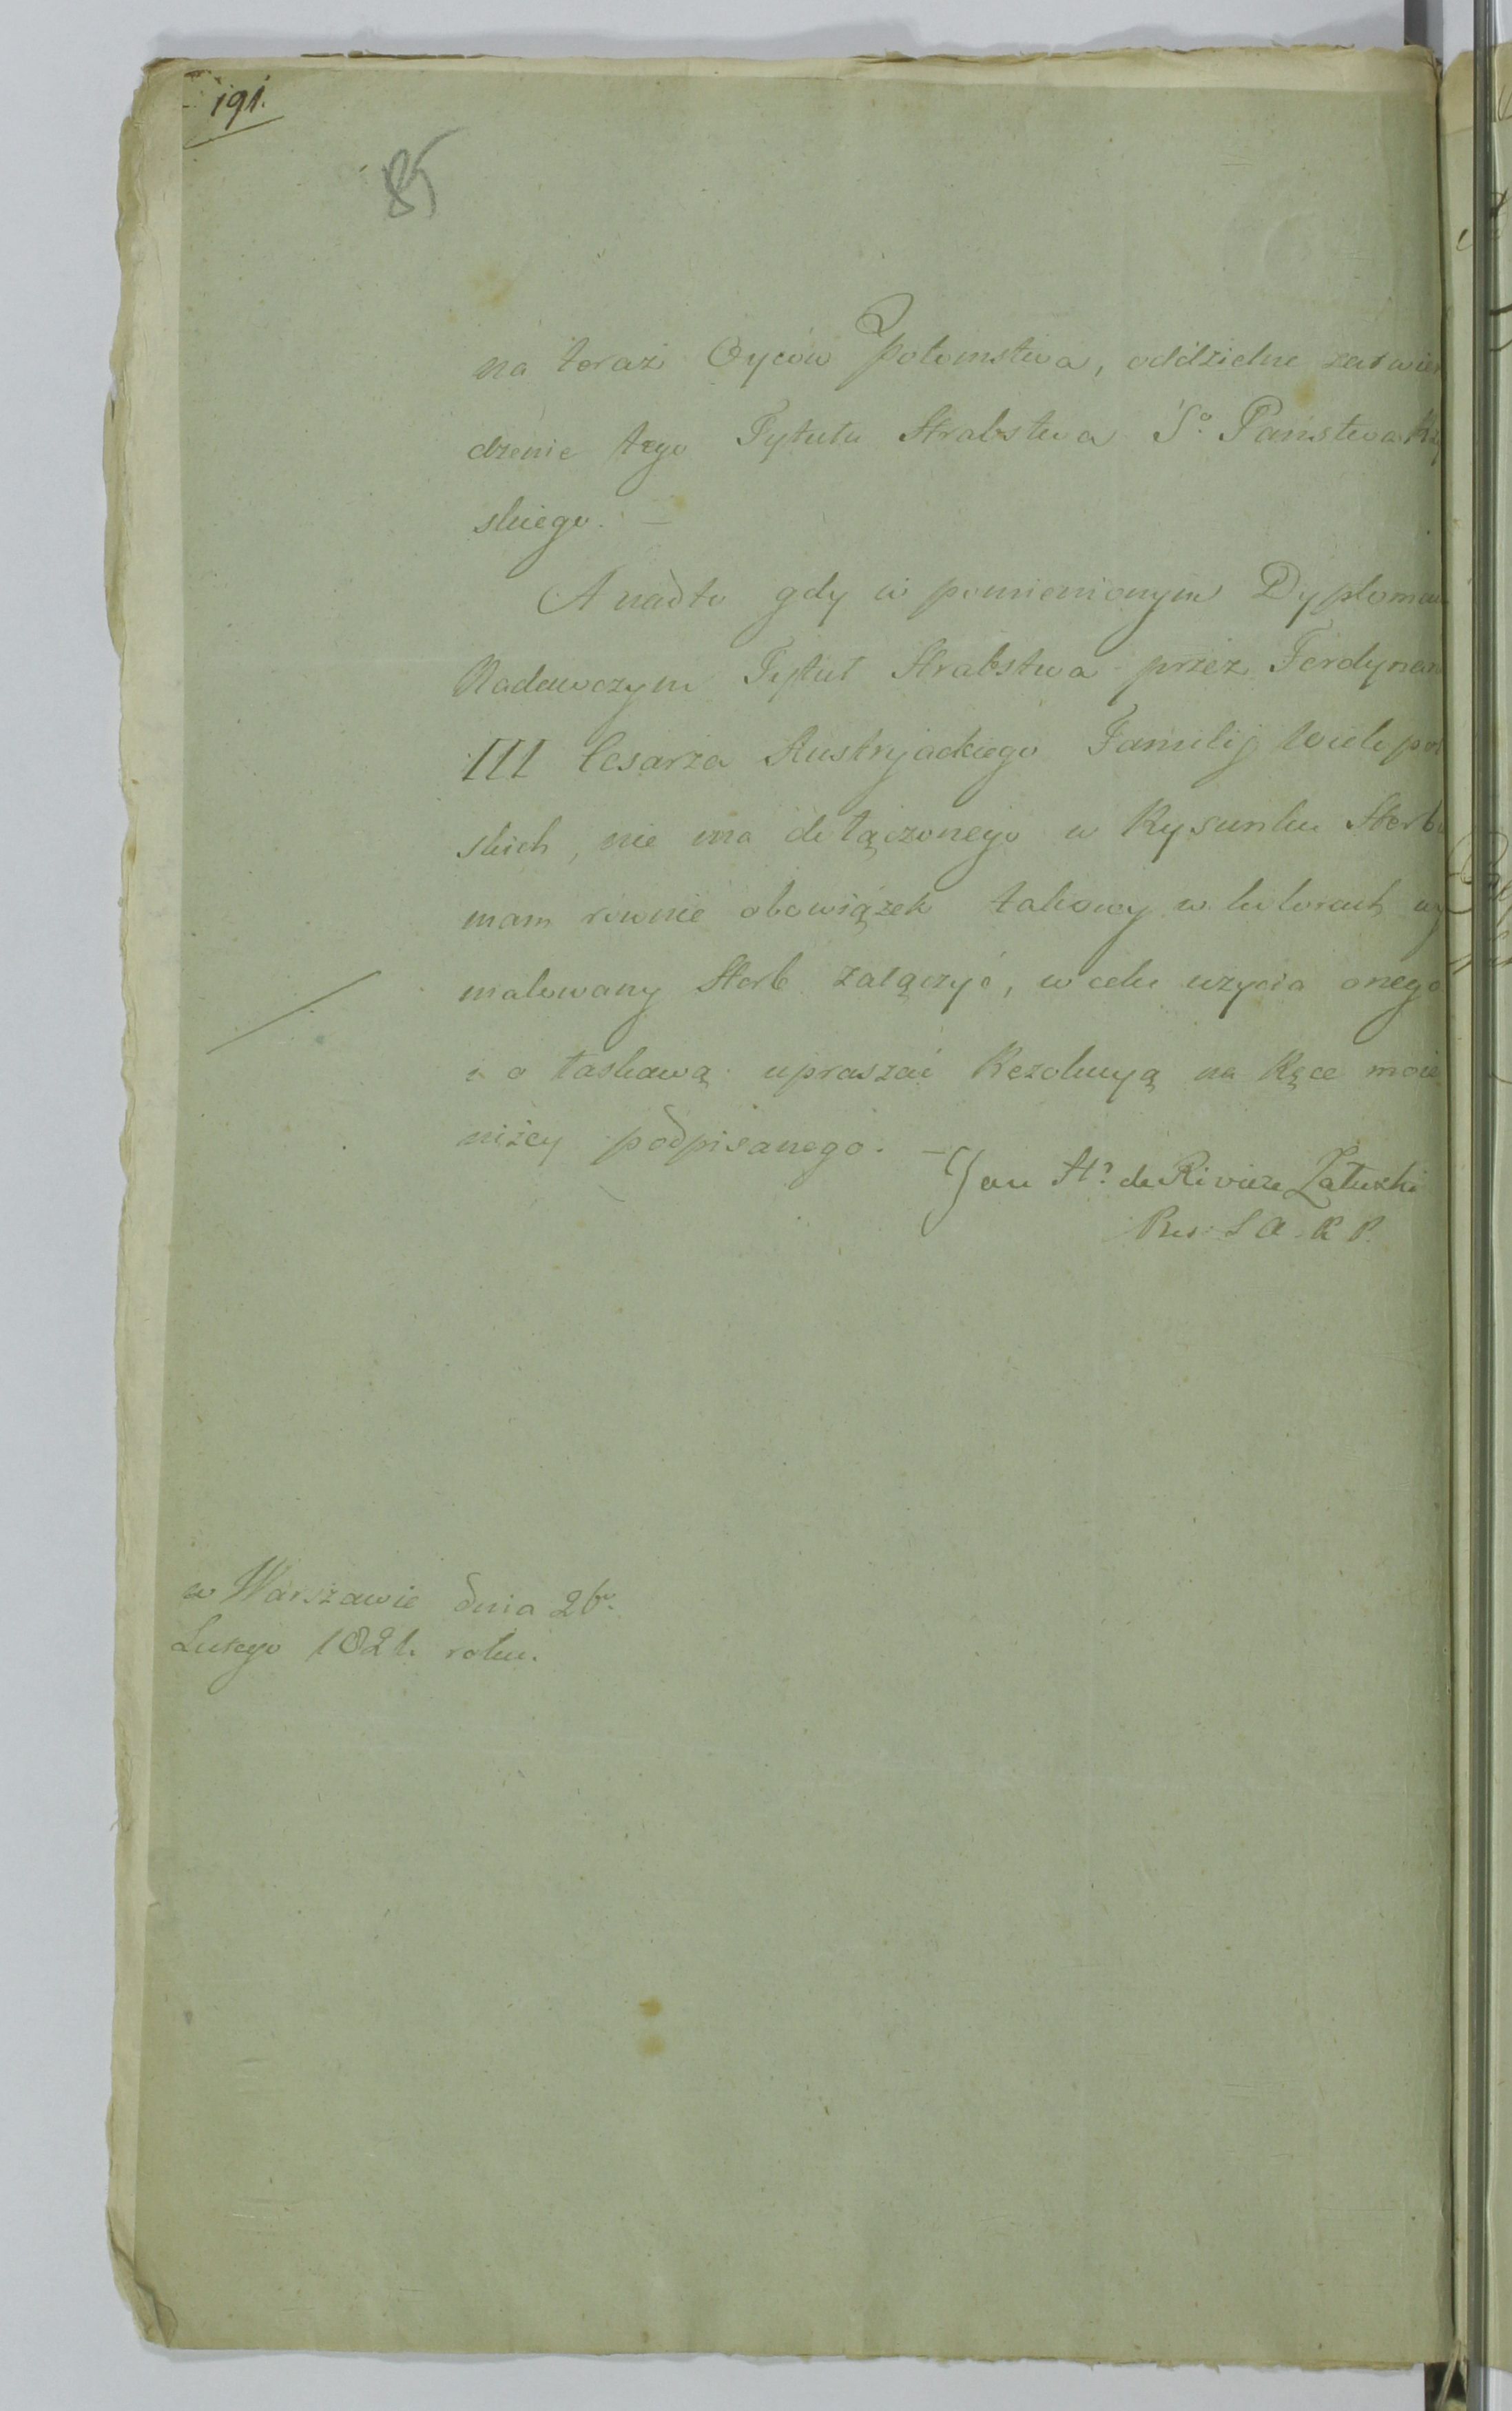 191.
85
na teraz Oyców Potomstwa, oddzielne zatwier
dzenie tego Tytułu Hrabstwa So. Państwa Rzy
skiego. —
A nadto gdy w pomienionym Dyplomacie
Nadawczym Tytuł Hrabstwa przez Ferdynan
III Cesarza Austryjackiego Familij Wielopol
skich, nie ma dołączonego w Rysunku Herbu
mam rownie obowiązek takowy w kolorach wy
malowany Herb załączyć, w celu uzycia onego
i o łaskawą upraszać Rezolucyą na Ręce moie
niżey podpisanego. —
Jan Hr. de Riviere Załuski
S A K P.
w Warszawie dnia 26o.
Lutego 1821. roku.